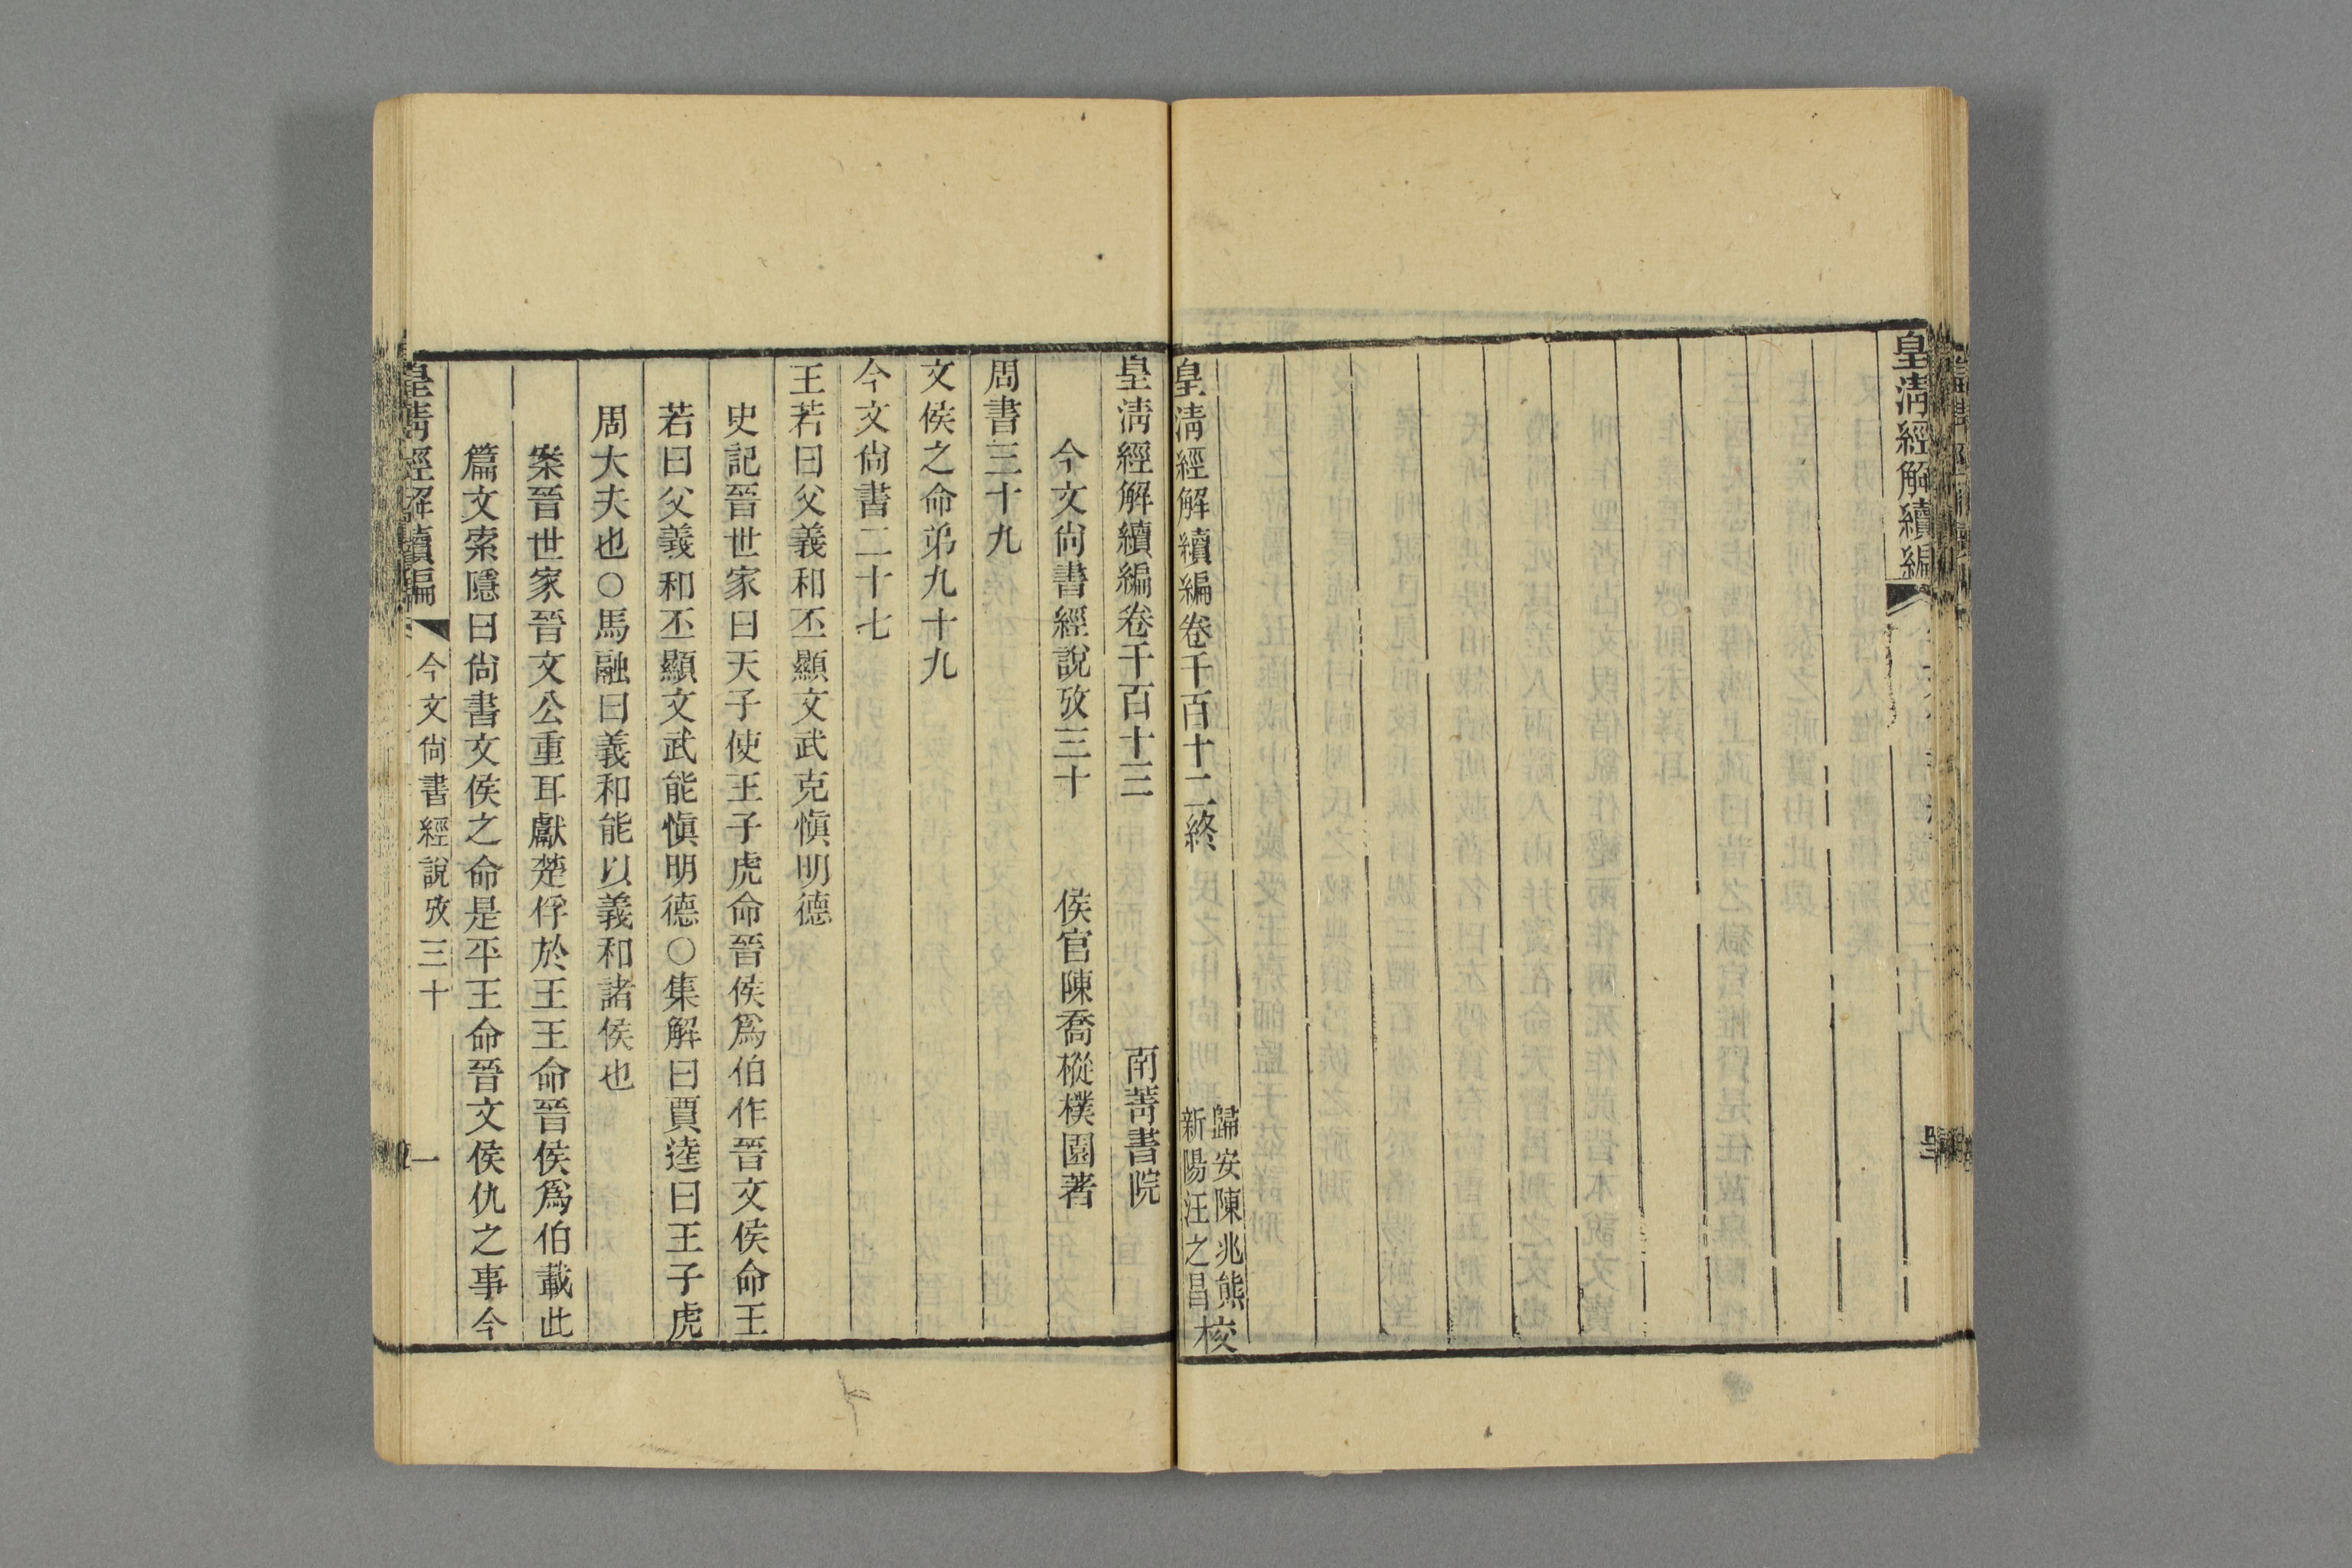 皇清經解續編
皇清經解續編卷千百十二終
歸安陳兆熊
新陽汪之昌
校
皇清經解續編卷千百十三
南菁書院
今文尙書經說攷三十
侯官陳喬樅樸園著
周書三十九
文侯之命弟九十九
今文尙書二十七
王若曰父義和丕顯文武克愼明德
史記晉世家曰天子使王子虎命晉侯爲伯作晉文侯命王
若曰父義和丕顯文武能愼明德○集解曰賈逵曰王子虎
周大夫也○馬融曰義和能以義和諸侯也
案晉世家晉文公重耳獻楚俘於王王命晉侯爲伯載此
篇文索隱曰尙書文侯之命是平王命晉文侯仇之事今
皇清經解續編
今文尙書經說攷三十
一